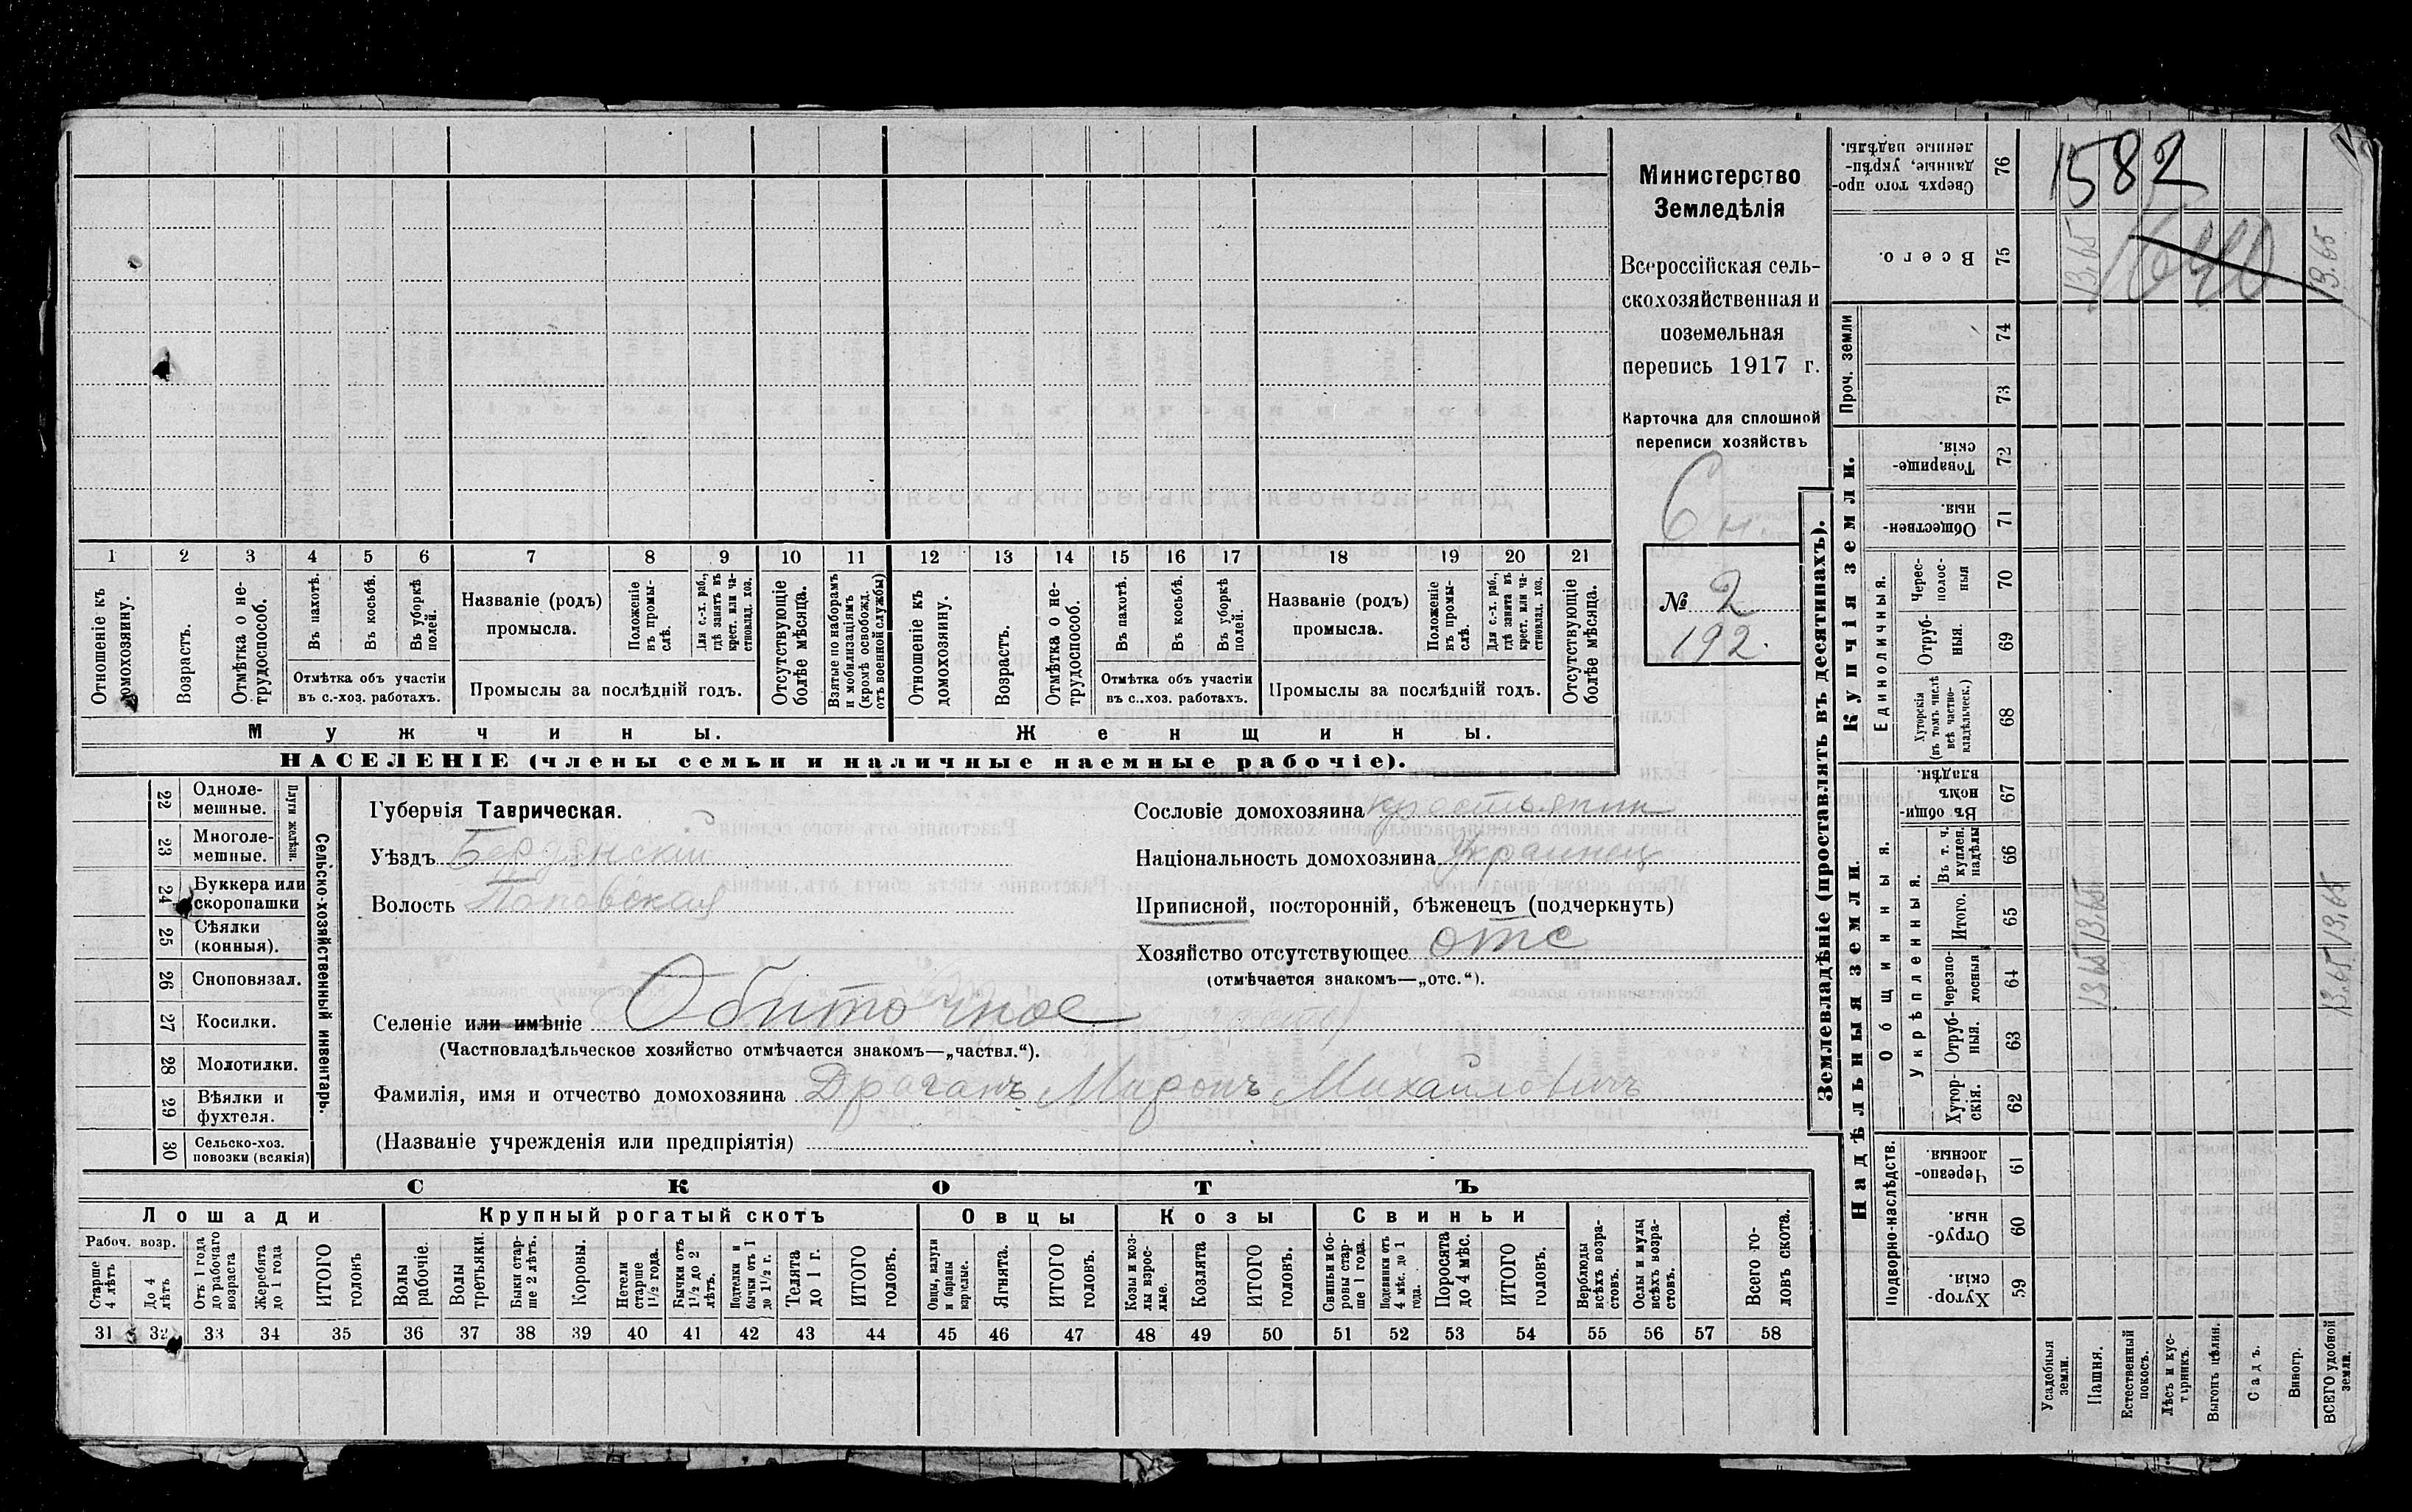 Министерство
Земледѣлія
Всероссійская сель-
скохозяйственная и
поземельная
перепись 1917 г.
Карточка для сплошной
переписи хозяйствъ
6 н.
№ 2
192.
1 2 3 4 5 6 7 8 9 10 11 12 13 14 15 16 17 18 19 20 21
Отношеніе къ домохозяину.
Возрастъ.
Отмѣтка о не-трудоспособ.
Въ пахотѣ.
Въ косьбѣ.
Въ уборкѣ полей.
Отмѣтка объ участіи
въ с.-хоз. работахъ.
Названіе (родъ)
промысла.
Положеніе въ промы-слѣ.
Для с.-х. раб., гдѣ занятъ въ крест. или ча-стновлад. хоз.
Промыслы за послѣдній годъ.
Отсутствующіе болѣе мѣсяца.
Взятые по наборамъ и мобилизаціямъ (кромѣ освобожд. отъ военной службы)
Отношеніе къ домохозяину.
Возрастъ.
Отмѣтка о не-трудоспособ.
Въ пахотѣ.
Въ косьбѣ.
Въ уборкѣ полей.
Отмѣтка объ участіи
въ с..хоз. работахъ.
Названіе (родъ)
промысла.
Положеніе въ промы-слѣ.
Для с.-х. раб., гдѣ занята въ крест. или ча-стновлад. хоз.
Промыслы за послѣдній годъ.
Отсутствующіе болѣе мѣсяца.
Мужчины.
Женщины.
НАСЕЛЕНІЕ (члены семьи и наличные наемные рабочіе).
22 Одноле-
мешные.
23 Многоле-
мешные.
Плуги желѣзн.
24 Буккера или
скоропашки
25 Сѣялки
(конныя).
26 Сноповязал.
27 Косилки.
28 Молотилки.
29 Вѣялки и
фухтеля.
30 Сельско-хоз.
повозки (всякія)
Сельско-хозяйственный инвентарь.
Губернія Таврическая.
Уѣздъ Бердянскій
Волость Поповская
Сословіе домохозяина крестьянин
Національность домохозяина Украинец
Приписной, посторонній, бѣженецъ (подчеркнуть)
Хозяйство отсутствующее отс
(отмѣчается знакомъ—„отс.“).
Селеніе или имѣніе Обиточное
(Частновладѣльческое хозяйство отмѣчается знакомъ—„частвл.“).
Фамилія, имя и отчество домохозяина Драганъ Миронъ Михайловичъ
(Названіе учрежденія или предпріятія)
СКОТЪ
Лошади
Крупный рогатый скотъ
Овцы
Козы
Свиньи
Рабоч. возр.
Старше 4 лѣтъ
До 4 лѣтъ
Отъ 1 года до рабочаго возраста
Жеребята до 1 года
ИТОГО головъ
Волы рабочіе.
Волы третьяки.
Быки стар-ше 2 лѣтъ.
Коровы.
Нетели старше 1½ года.
Бычки отъ 1½ до 2 лѣтъ.
Подтелки и бычки отъ 1 до 1½ г.
Телята до 1 г.
ИТОГО головъ.
Овцы, валухи и бараны взрослые.
Ягнята.
ИТОГО головъ.
Козы и коз-лы взрос-лые.
Козлята
ИТОГО головъ.
Свиньи и бо-ровы стар-ше 1 года.
Подсвинки отъ 4 мѣс. до 1 года.
Поросята до 4 мѣс.
ИТОГО головъ.
Верблюды всѣхъ возра-стовъ.
Ослы и мулы всѣхъ возра-стовъ.
Всего го-ловъ скота.
31 32 33 34 35 36 37 38 39 40 41 42 43 44 45 46 47 48 49 50 51 52 53 54 55 56 57 58
Землевладѣніе (проставлять въ десятинахъ).
Надѣльныя земли.
Купчія земли.
Проч. земли
Подворно-наслѣдств.
Общинныя.
Укрѣпленныя.
Единоличныя.
Сверхъ того про-данные, укрѣп-ленные надѣлы. 76
Всего. 75
74
73
Товарище-скія. 72
Обществен-ныя. 71
Черес-полос-ныя 70
Отруб-ныя. 69
Хуторскія (въ томъ числѣ всѣ частно-владѣльческ.) 68
Въ общи-номъ владѣн. 67
Въ т. ч. куплен. надѣлы 66
Итого. 65
Черезпо-лосныя 64
Отруб-ныя. 63
Хутор-скія. 62
Черезпо-лосныя. 61
Отруб-ныя. 60
Хутор-скія. 59
Усадебныя земли.
Пашня.
Естественный покосъ.
Лѣсъ и кус-тарникъ.
Выгонъ цѣлин.
Садъ.
Виногр.
ВСЕГО удобной земли.
1582
1640
13,65
13,65
13,65 13,65
13,65 13,65